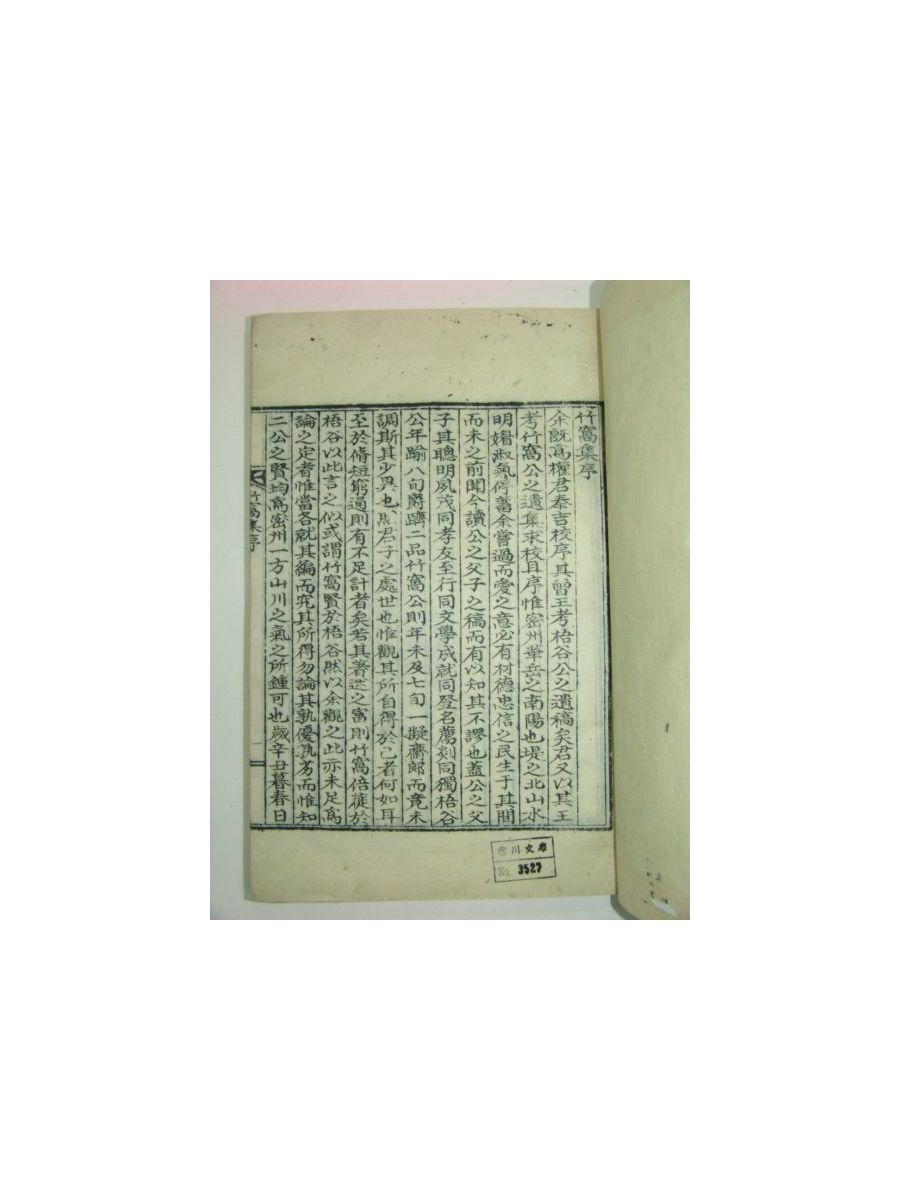 竹窩集序
余旣爲權君泰吉校序其曾王考梧谷公之遺稿矣君又以其王
考竹窩公之遺集求校且序惟密州華岳之南陽也堤之北山水
明媚淑氣停蓄余嘗過而愛之意必有材德忠信之民生于其間
而未之前聞今讀公之父子之稿而有以知其不謬也蓋公之父
子其聰明夙茂同孝友至行同文學成就同登名薦剡同獨梧谷
公年踰八旬爵躋二品竹窩公則年未及七旬一擬齋郞而竟未
調斯其少異也然君子之處世也惟觀其所自得於己者何如耳
至於脩短窮通則有不足計者矣若其著述之富則竹窩倍蓰於
梧谷以此言之似或謂竹窩賢於梧谷然以余觀之此亦未足爲
論之定者惟當各就其編而究其所得勿論其孰優孰劣而惟知
二公之賢均爲密州一方山川之氣之所鍾可也歲辛丑暮春日
竹窩集序
一
川文庫
No. 3527